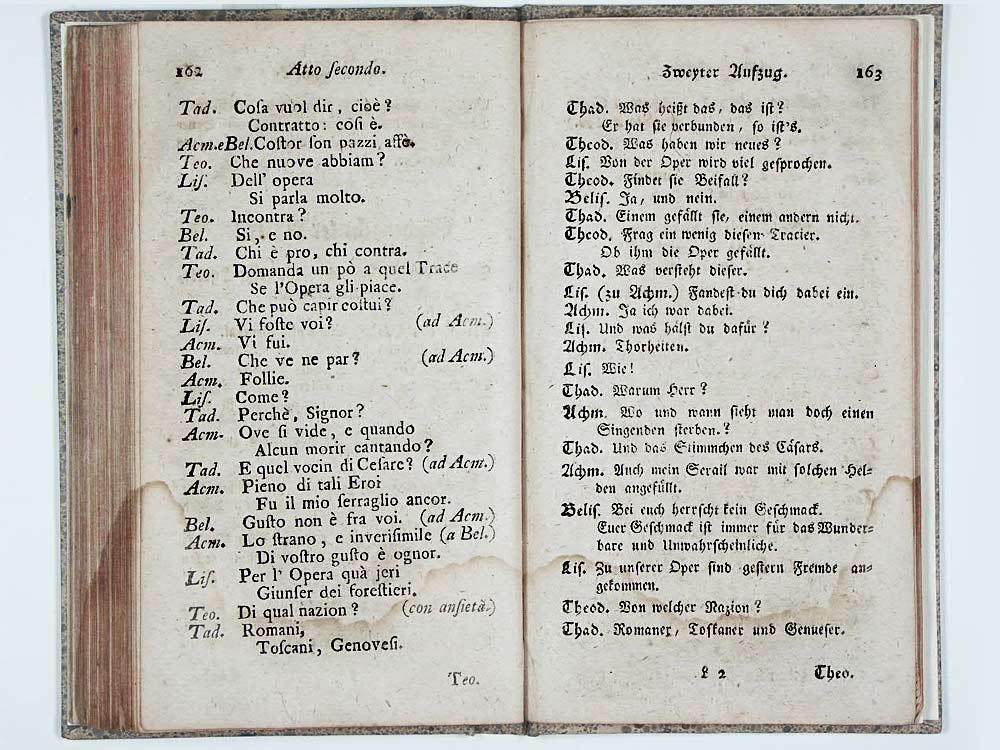 162 Atto ſecondo.
Tad. Coſa vuol dir, cioè?
Contratto: coſi è.
Acm.eBel. Coſtor ſon pazzi affè.
Teo. Che nuove abbiam?
Liſ. Dell' opera
Si parla molto.
Teo. Incontra?
Bel. Si, e no.
Tad. Chi è pro, chi contra.
Teo. Domanda un pò a quel Trace
Se l'Opera gli piace.
Tad. Che può capir coſtui?
Liſ. Vi foſte voi? (ad Acm.)
Acm. Vi fui.
Bel. Che ve ne par? (ad Acm.)
Acm. Follie.
Liſ. Come?
Tad. Perchè, Signor?
Acm. Ove ſi vide, e quando
Alcun morir cantando?
Tad. E quel vocin di Ceſare? (ad Acm.)
Acm. Pieno di tali Eroi
Fu il mio ſerraglio ancor.
Bel. Guſto non è fra voi. (ad Acm.)
Acm. Lo ſtrano, e inveriſimile (a Bel.)
Di voſtro guſto è ognor.
Liſ. Per l' Opera quà jeri
Giunſer dei foreſtieri.
Teo. Di qual nazion? (con anſietà.)
Tad. Romani,
Toſcani, Genoveſi.
Teo.
Zweyter Aufzug. 163
Thad. Was heißt das, das iſt?
Er hat ſie verbunden, ſo iſt's.
Theod. Was haben wir neues?
Liſ. Von der Oper wird viel geſprochen.
Theod. Findet ſie Beifall?
Beliſ. Ja, und nein.
Thad. Einem gefällt ſie, einem andern nicht.
Theod. Frag ein wenig dieſen Tracier.
Ob ihm die Oper gefällt.
Thad. Was verſteht dieſer.
Liſ. (zu Achm.) Fandeſt du dich dabei ein.
Achm. Ja ich war dabei.
Liſ. Und was hälſt du dafür?
Achm. Thorheiten.
Liſ. Wie!
Thad. Warum Herr?
Achm. Wo und wann ſieht man doch einen
Singenden ſterben.?
Thad. Und das Stimmchen des Cäſars.
Achm. Auch mein Serail war mit ſolchen Hel-
den angefüllt.
Beliſ. Bei euch herrſcht kein Geſchmack.
Euer Geſchmack iſt immer für das Wunder-
bare und Unwahrſcheinliche.
Liſ. Zu unſerer Oper ſind geſtern Fremde an-
gekommen.
Theod. Von welcher Nazion?
Thad. Romaner, Toſkaner und Genueſer.
L 2 Theo.